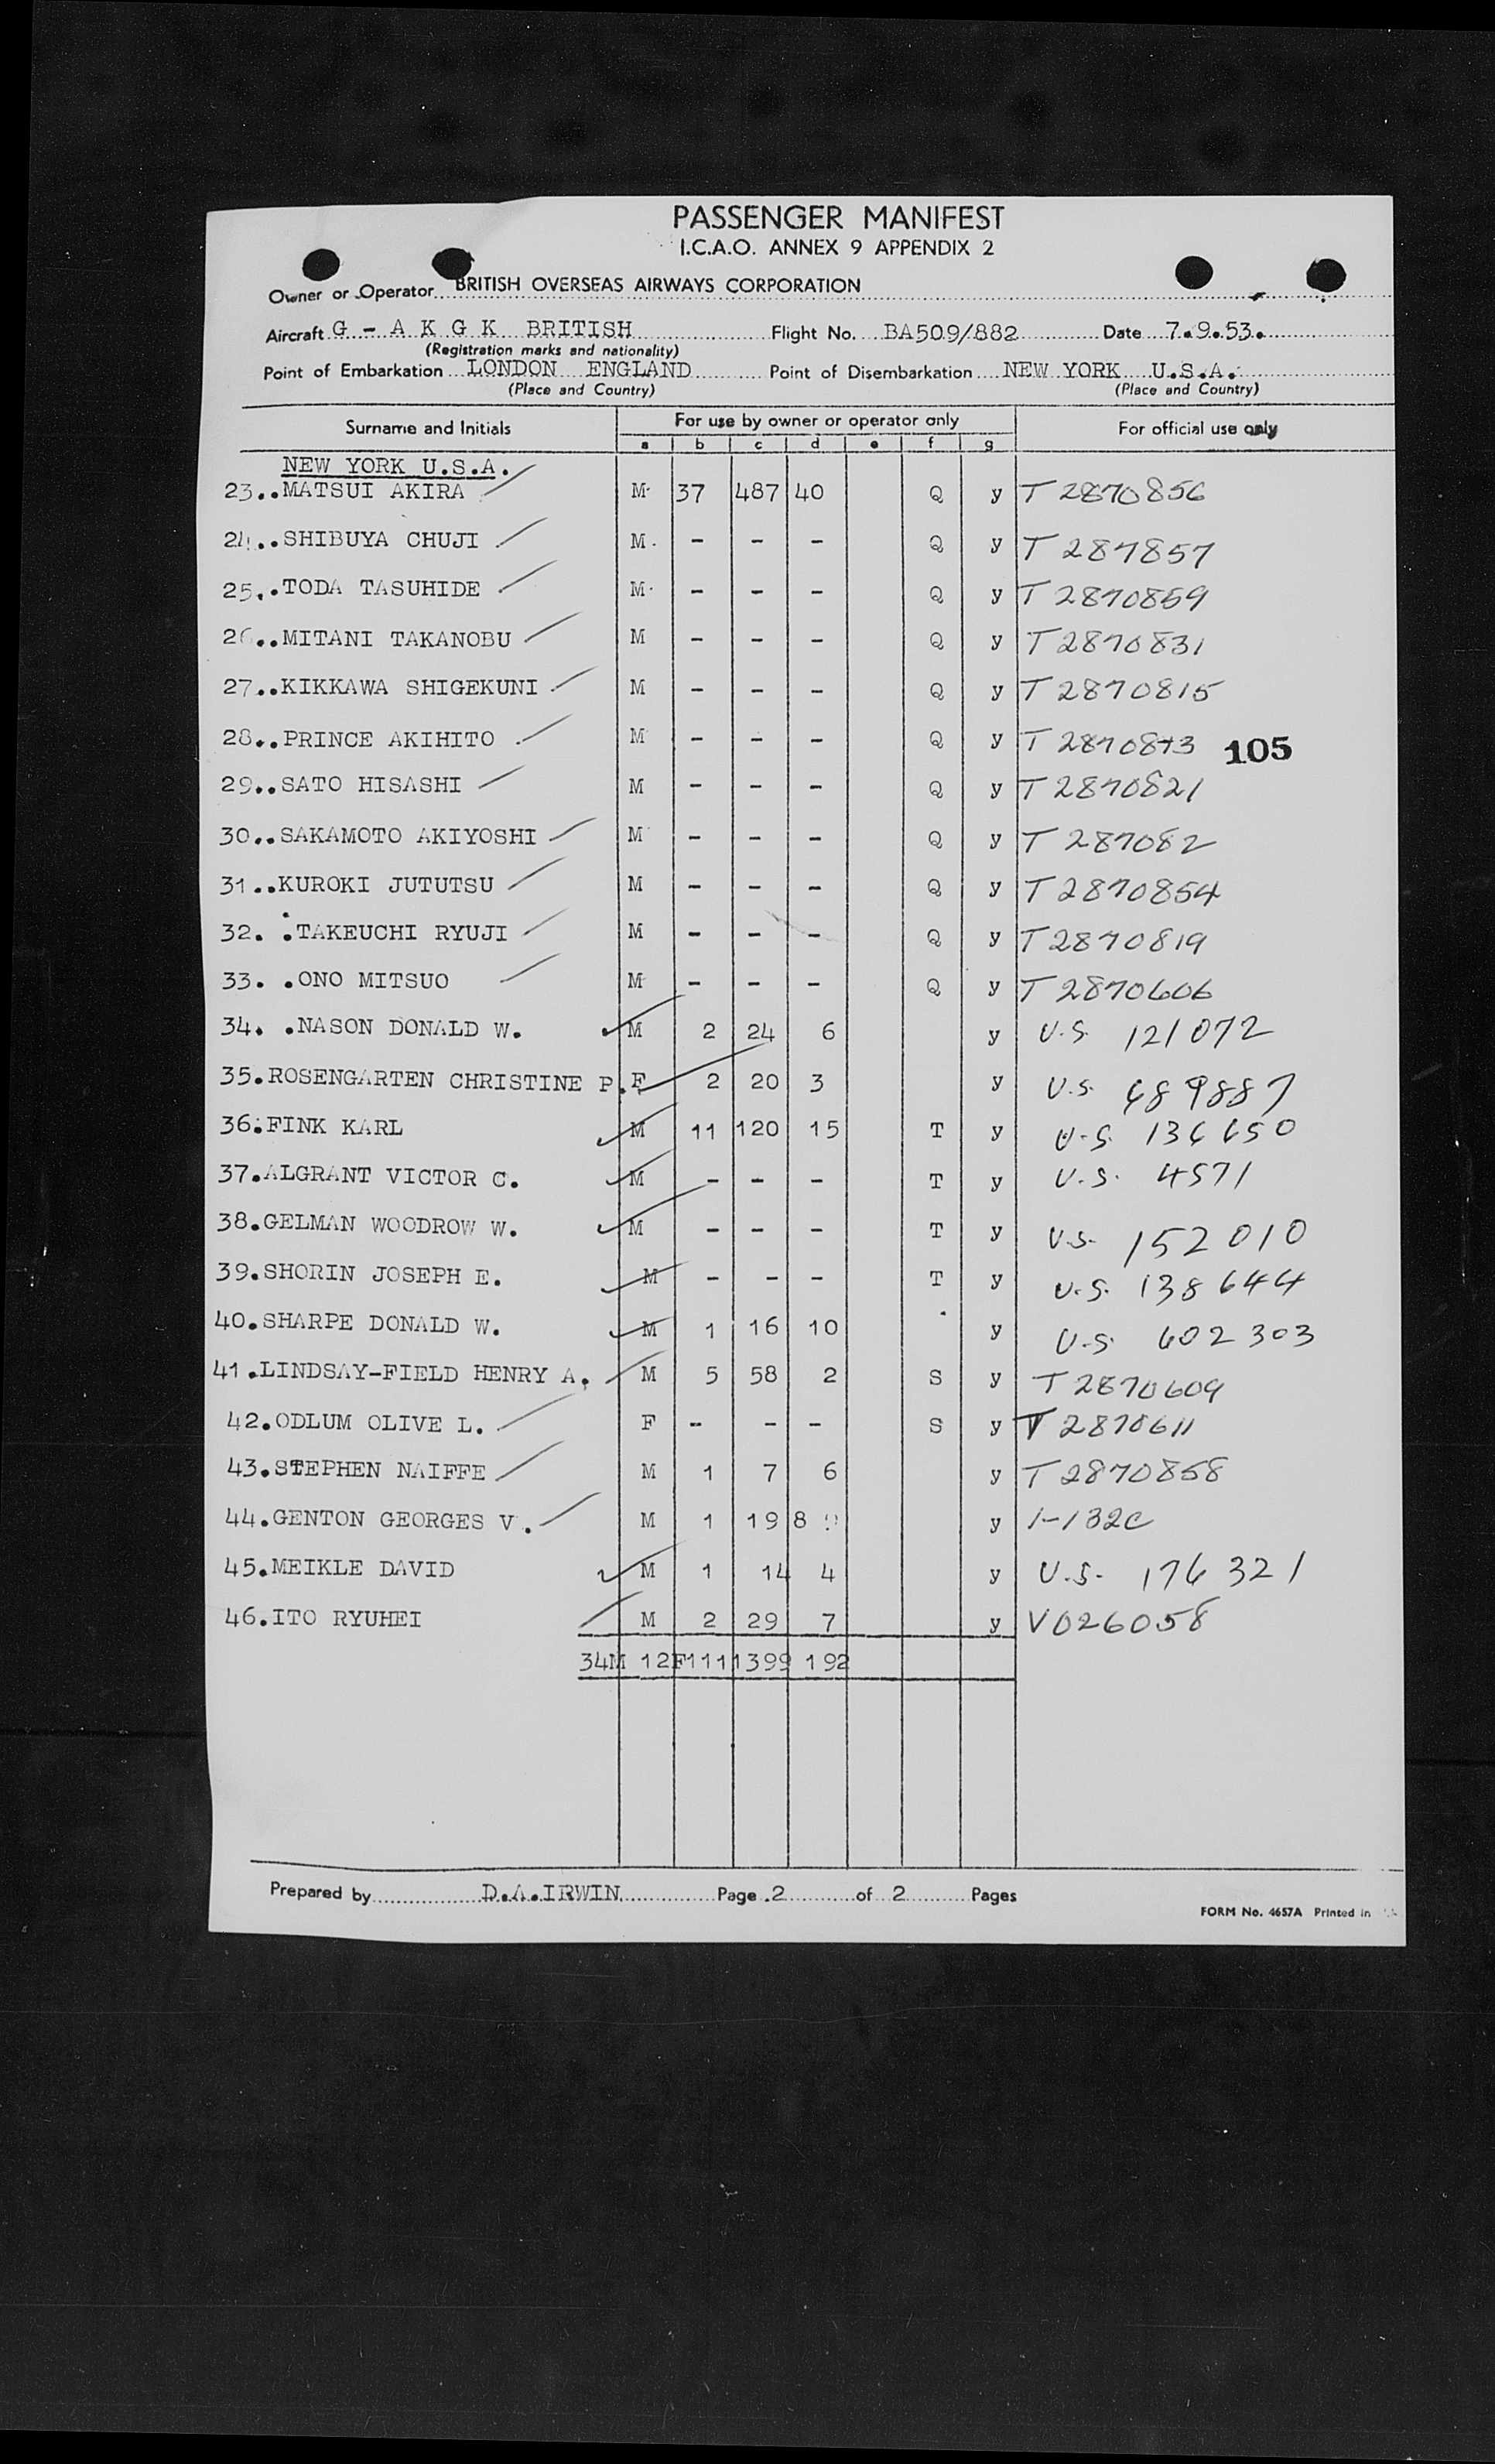 PASSENGER MANIFEST
I.C.A.O. ANNEX 9 APPENDIX 2
Owner or Operator BRITISH OVERSEAS AIRWAYS CORPORATION
Aircraft G - A K G K BRITISH Flight No. BA509/882 Date 7.9.53.
(Registration marks and nationality)
Point of Embarkation LONDON ENGLAND Point of Disembarkation NEW YORK U.S.A.
(Place and Country) (Place and Country)
Surname and Initials For use by owner or operator only For official use only
a b c d e f g
NEW YORK U.S.A.
23..MATSUI AKIRA M 37 487 40 Q y T 2870856
24..SHIBUYA CHUJI M. - - - Q y T 287857
25..TODA TASUHIDE M. - - - Q y T 2870859
26..MITANI TAKANOBU M - - - Q y T 2870831
27..KIKKAWA SHIGEKUNI M - - - Q y T 2870815
28..PRINCE AKIHITO M - - - Q y T 2870873 105
29..SATO HISASHI M - - - Q y T 2870821
30..SAKAMOTO AKIYOSHI M - - - Q y T 287082
31..KUROKI JUTUTSU M - - - Q y T 2870854
32. .TAKEUCHI RYUJI M - - - Q y T 2870819
33. .ONO MITSUO M - - - Q y T 2870606
34. .NASON DONALD W. M 2 24 6 y U.S. 121072
35.ROSENGARTEN CHRISTINE P. F 2 20 3 y U.S. 689887
36.FINK KARL M 11 120 15 T y U.S. 136650
37.ALGRANT VICTOR C. M - - - T y U.S. 4571
38.GELMAN WOODROW W. M - - - T y U.S. 152010
39.SHORIN JOSEPH E. M - - - T y U.S. 138644
40.SHARPE DONALD W. M 1 16 10 y U.S. 602303
41.LINDSAY-FIELD HENRY A. M 5 58 2 S y T 2870609
42.ODLUM OLIVE L. F - - - S y T 2870611
43.STEPHEN NAIFFE M 1 7 6 y T 2870858
44.GENTON GEORGES V. M 1 19 8 y 1-132C
45.MEIKLE DAVID M 1 14 4 y U.S. 176321
46.ITO RYUHEI M 2 29 7 y V026058
34M 12F 111 1399 192
Prepared by D.A.IRWIN Page 2 of 2 Pages
FORM No. 4657A Printed in